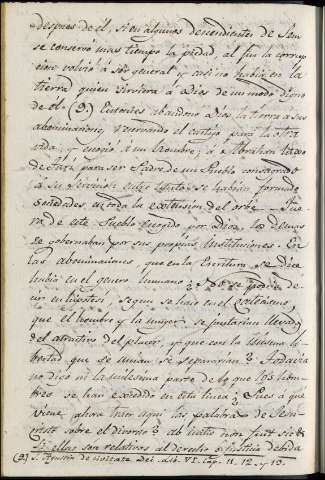 despues de el, si en algunos descendientes de Sem
se conservó mas tiempo la piedad, al fin la corrup
cion volvió á ser general y casi no había en la
tierra quien sirviera á Dios de un modo digno
de el. (2.) Entonces abandonó Dios la tierra a sus
abominaciones, reservando el castigo para la otra
vida, y escogió á un hombre, á Abraham
de Tharé para ser Padre de un Pueblo consagrado
á su servicio. se habían formado
Sociedades en toda la extension del orbe. Fue
ra de este Pueblo escogido por Dios, los demas
se gobernaban por sus propias instituciones. En
las abominaciones que en la Escritura se dice
había en el genero humano se podría de
cir
que el hombre y la muger se juntarian llevados
del atractivo del placer, y que con la misma li
bertad que se unian se separarian? Todavia
no digo ni la milésima parte de lo que los hom
bres se han excedido en esta linea. Pues á que
viene ahora traer aqui las palabras de Jesu-
cristo sobre el divorcio: ab initio non fuit sic?
ellas son relativas al derecho
(2) S. Agustin de Civitate Dei. lib. 15. Cap. 11. 12. y 13.